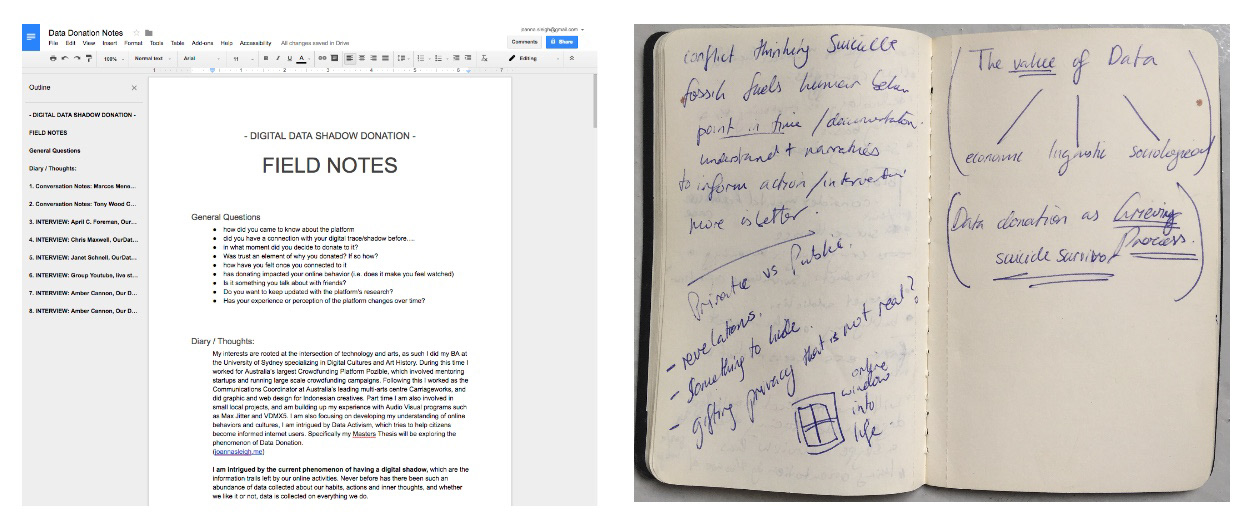 Data Donation Notes
joanna.sleigh@gmail.com
File Edit View Insert Format Tools Table Add-ons Help Accessibility All changes saved in Drive
Comments Share
100% Normal text Arial 11 B I U A Editing
1 1 2 3 4 5 6 7
Outline
- DIGITAL DATA SHADOW DONATION -
FIELD NOTES
General Questions
Diary / Thoughts:
1. Conversation Notes: Marcos Mene...
2. Conversation Notes: Tony Wood C...
3. INTERVIEW: April C. Foreman, Our...
4. INTERVIEW: Chris Maxwell, OurDat...
5. INTERVIEW: Janet Schnell, OurDat...
6. INTERVIEW: Group Youtube, live st...
7. INTERVIEW: Amber Cannon, Our D...
8. INTERVIEW: Amber Cannon, Our D...
- DIGITAL DATA SHADOW DONATION -
FIELD NOTES
General Questions
● how did you came to know about the platform
● did you have a connection with your digital trace/shadow before....
● In what moment did you decide to donate to it?
● Was trust an element of why you donated? If so how?
● how have you felt once you connected to it
● has donating impacted your online behavior (i.e. does it make you feel watched)
● Is it something you talk about with friends?
● Do you want to keep updated with the platform's research?
● Has your experience or perception of the platform changes over time?
Diary / Thoughts:
My interests are rooted at the intersection of technology and arts, as such I did my BA at
the University of Sydney specializing in Digital Cultures and Art History. During this time I
worked for Australia's largest Crowdfunding Platform Pozible, which involved mentoring
startups and running large scale crowdfunding campaigns. Following this I worked as the
Communications Coordinator at Australia's leading multi-arts centre Carriageworks, and
did graphic and web design for Indonesian creatives. Part time I am also involved in
small local projects, and am building up my experience with Audio Visual programs such
as Max Jitter and VDMX5. I am also focusing on developing my understanding of online
behaviors and cultures, I am intrigued by Data Activism, which tries to help citizens
become informed internet users. Specifically my Masters Thesis will be exploring the
phenomenon of Data Donation.
(joannasleigh.me)
I am intrigued by the current phenomenon of having a digital shadow, which are the
information trails left by our online activities. Never before has there been such an
abundance of data collected about our habits, actions and inner thoughts, and whether
we like it or not, data is collected on everything we do.
conflict thinking Suicide
fossil fuels human
point in time /
understand + narratives
to inform action/
more is better.
Private vs Public.
- revelations.
- Something to hide.
- gifting privacy that is not real?
online
window
into
life.
The value of Data
economic linguistic sociological
Data donation as Grieving
Process.
suicide survivor